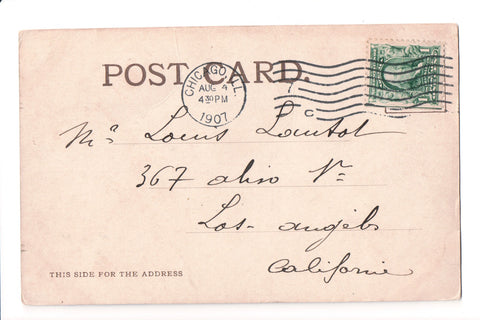 POST CARD.
CHICAGO, ILL.
AUG 4
4 30 PM
1907
C
Mr Louis Lautot
367 aliso
Los-angels
Californie
THIS SIDE FOR THE ADDRESS